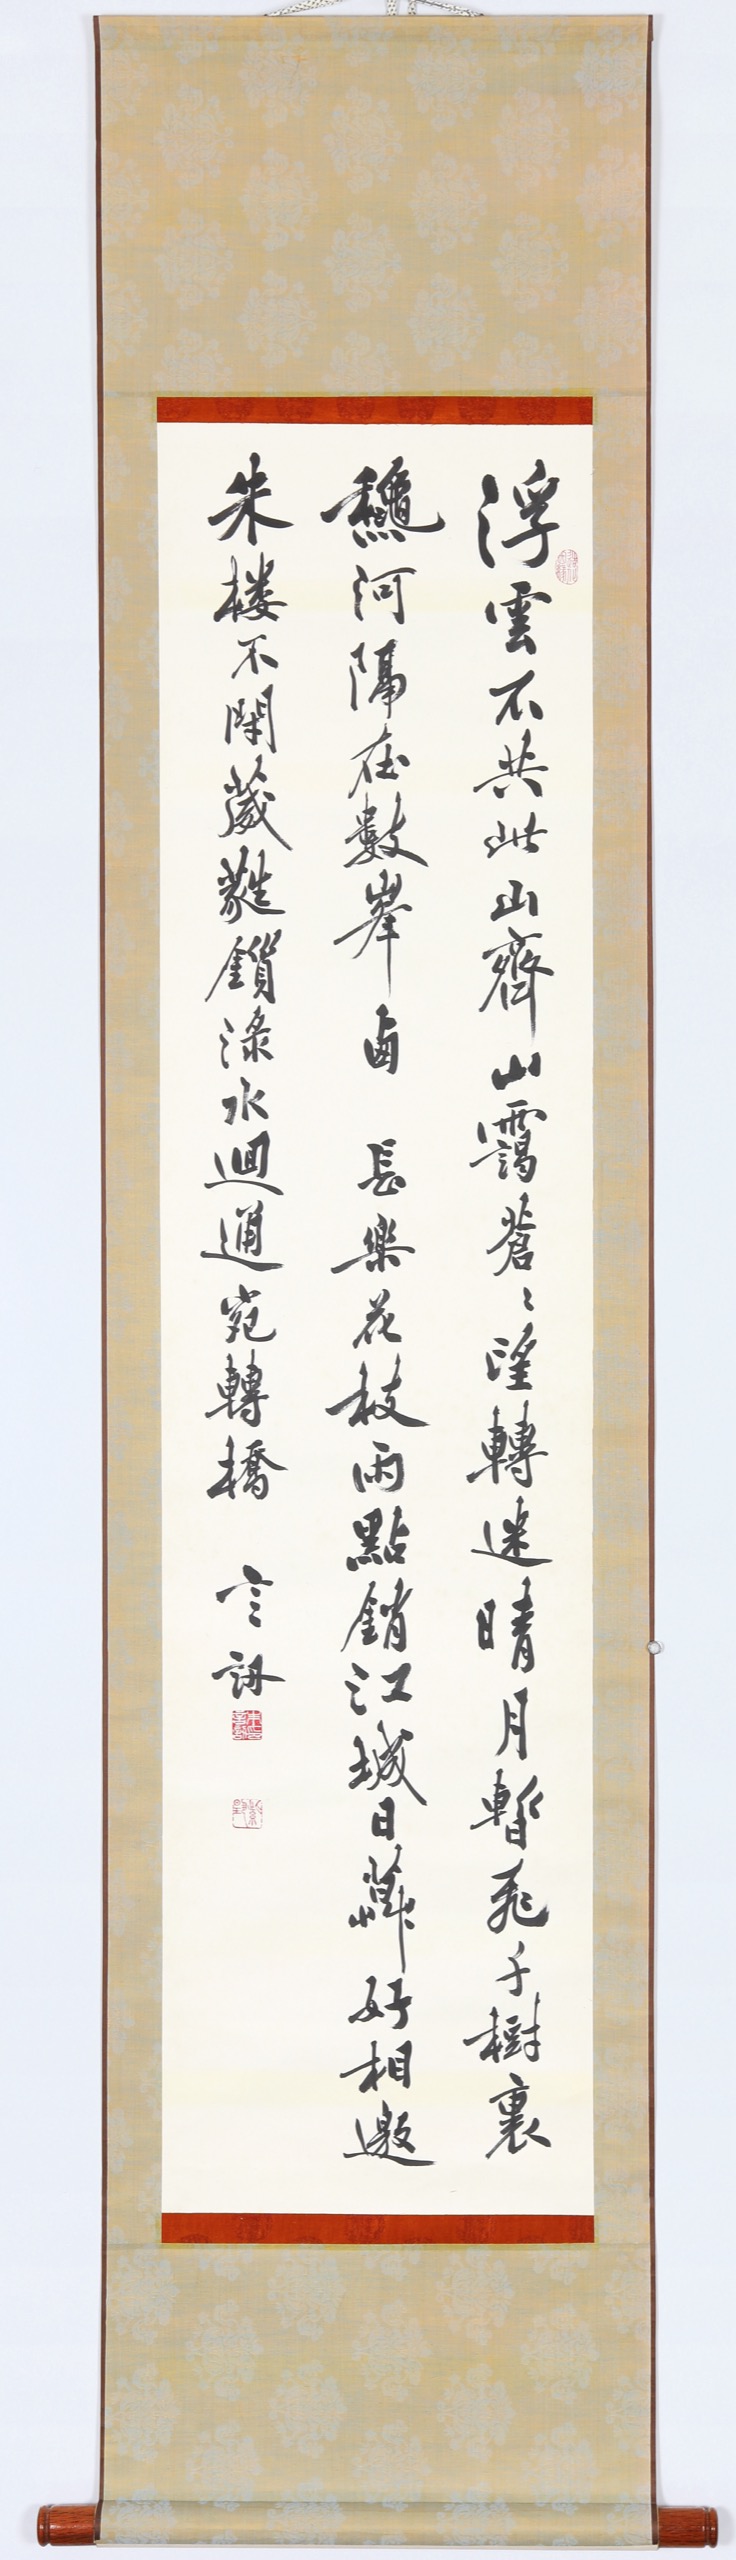 浮雲不共此山齊山靄蒼〻望轉迷晴月暫飛千樹裏
龝河隔在數峯卥 長樂花枝雨點銷江城日暮好相邀
朱楼不閉葳蕤鎖淥水迴通宛轉橋